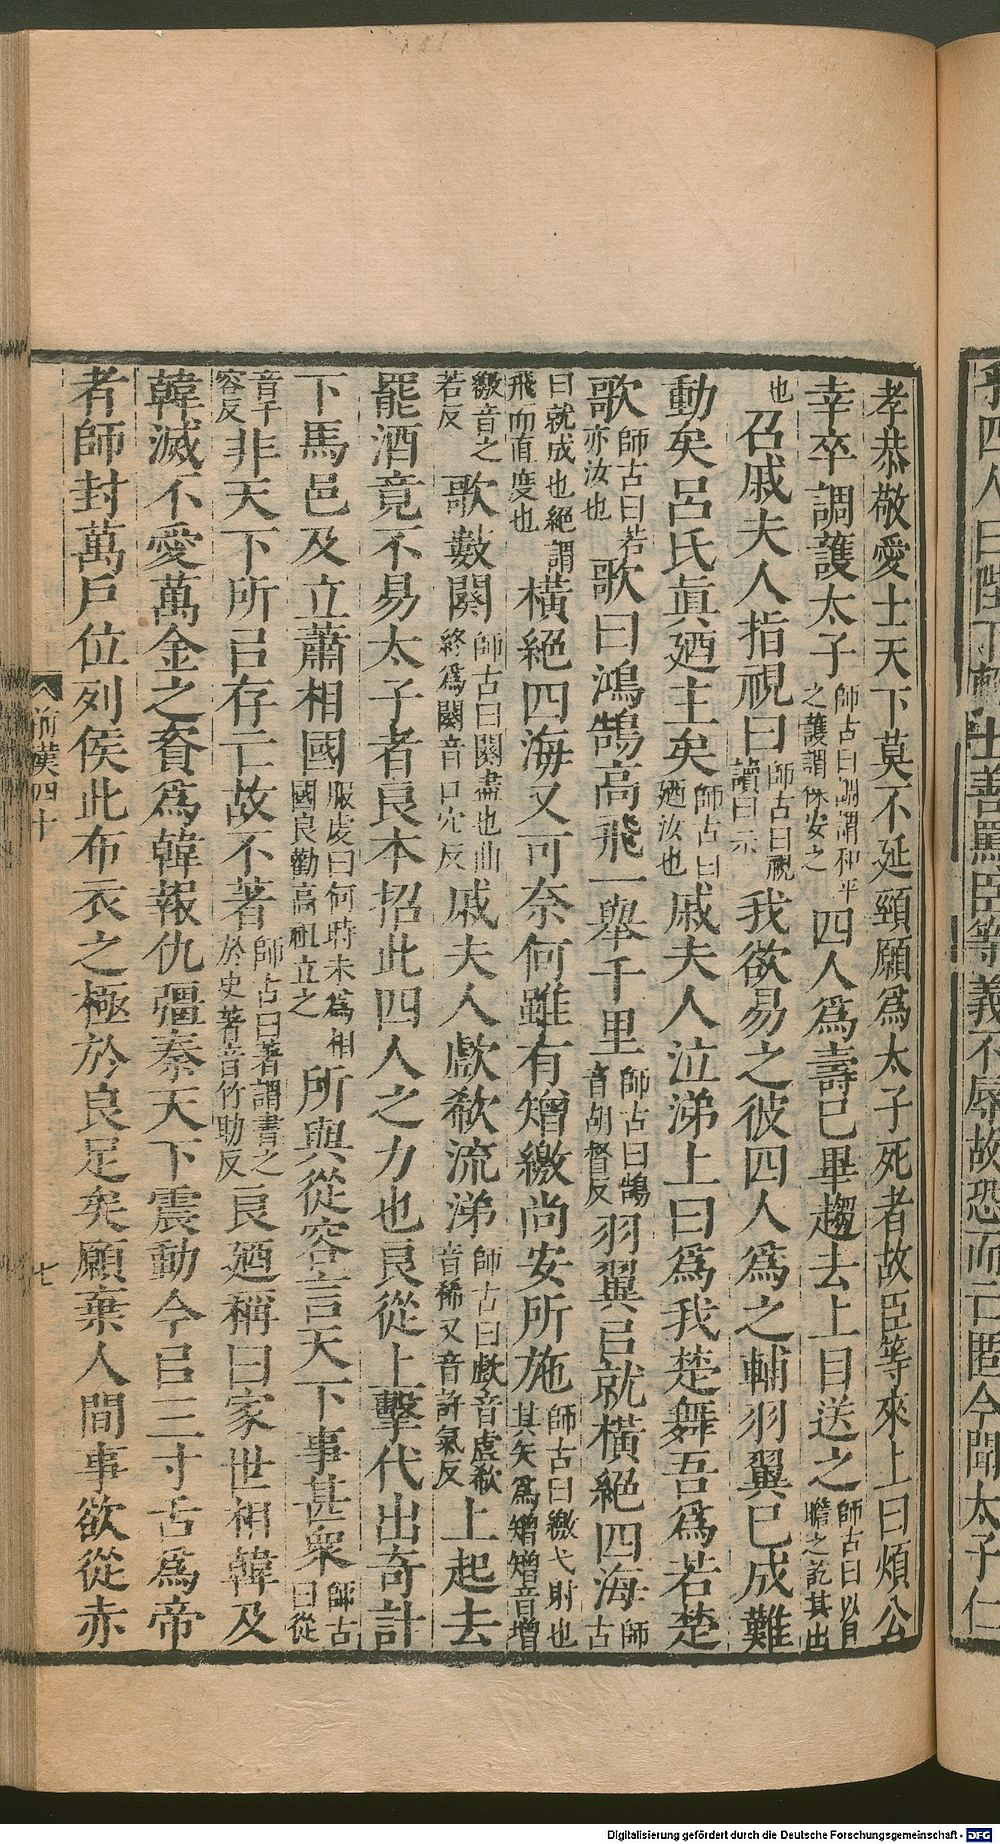 孝恭敬愛士天下莫不延頸願爲太子死者故臣等來上曰煩公
幸卒調護太子師古曰調謂和平之護謂保安之四人爲壽已畢趨去上目送之師古曰以目瞻之訖其出
也召戚夫人指視曰師古曰視讀曰示我欲易之彼四人爲之輔羽翼已成難
動矣呂氏眞廼主矣師古曰廼汝也戚夫人泣涕上曰爲我楚舞吾爲若楚
歌師古曰若亦汝也歌曰鴻鵠高飛一舉千里師古曰鵠音胡督反羽翼㠯就橫絕四海師古
曰就成也絕謂飛而直度也橫絕四海又可奈何雖有矰繳尚安所施師古曰繳弋射也其矢爲矰矰音增
繳音之若反歌數闋師古曰闋盡也曲終爲闋音口穴反戚夫人歔欷流涕師古曰歔音虛欷音稀又音許氣反上起去
罷酒竟不易太子者良本招此四人之力也良從上擊代出奇計
下馬邑及立蕭相國服虔曰何時未爲相國良勸高祖立之所與從容言天下事甚衆師古曰從
音千容反非天下所㠯存亡故不著師古曰著謂書之於史著音竹助反良廼稱曰家世相韓及
韓滅不愛萬金之資爲韓報仇彊秦天下震動今㠯三寸舌爲帝
者師封萬戶位列侯此布衣之極於良足矣願棄人間事欲從赤
前漢四十
七
士善罵臣等義不辱故恐而亡匿今聞太子仁
Digitalisierung gefördert durch die Deutsche Forschungsgemeinschaft - DFG